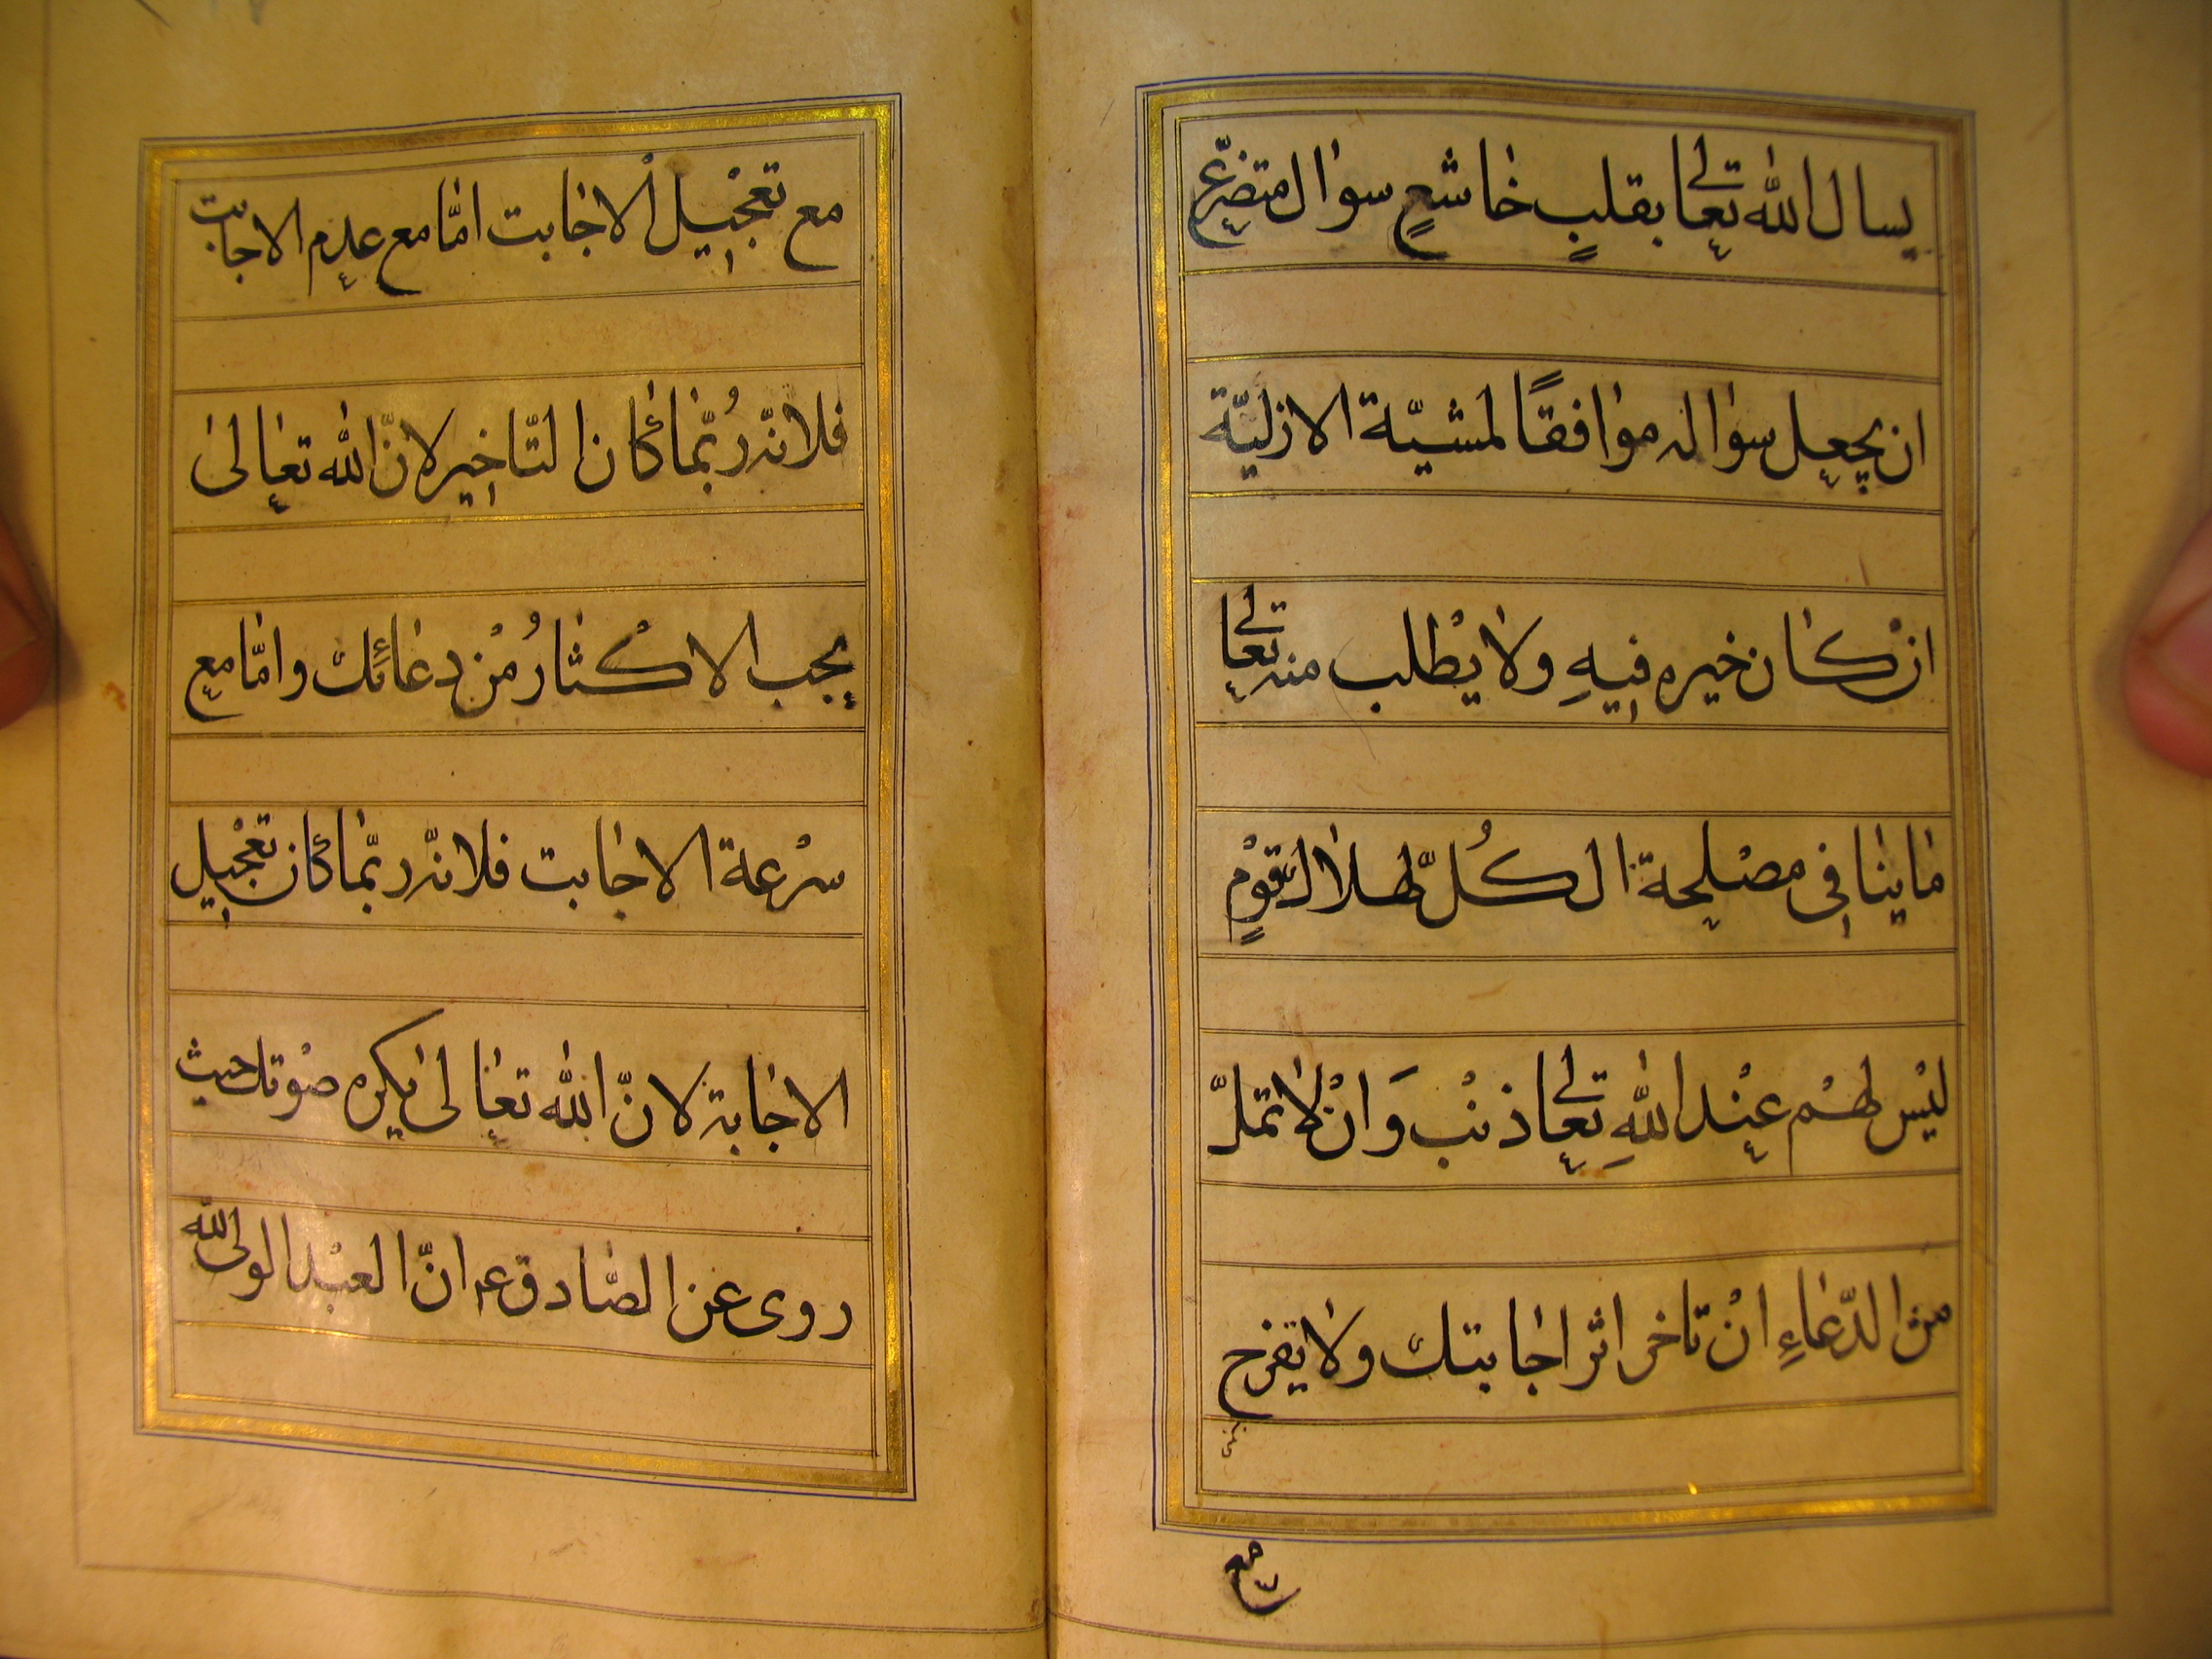 يسال الله تعالى بقلبٍ خاشعٍ سوال متضرّع
ان يجعل سواله موافقًا لمشيّة الازليّة
انْ كان خيره فيهِ ولا يطْلب منه تعالى
ما ينافى مصْلحة الكُلّ لهلاك قوْمٍ
ليْس لهمْ عنْد اللهِ تعالى ذنْب وَانْ لا تملّ
من الدّعاءِ انْ تاخر اثر اجابتك ولا يفرح
مع
مع تعْجيل الاجابت امّا مع عدم الاجابت
فلانّه رُبّما كان التّاخير لانّ الله تعالى
يحب الاكْثارُ منْ دعائك وامّا مع
سرْعة الاجابت فلانّه ربّما كان تعْجيل
الاجابة لانّ الله تعالى يكره صوْتك حيث
روى عن الصّادق ع انّ العبْد الولى لله